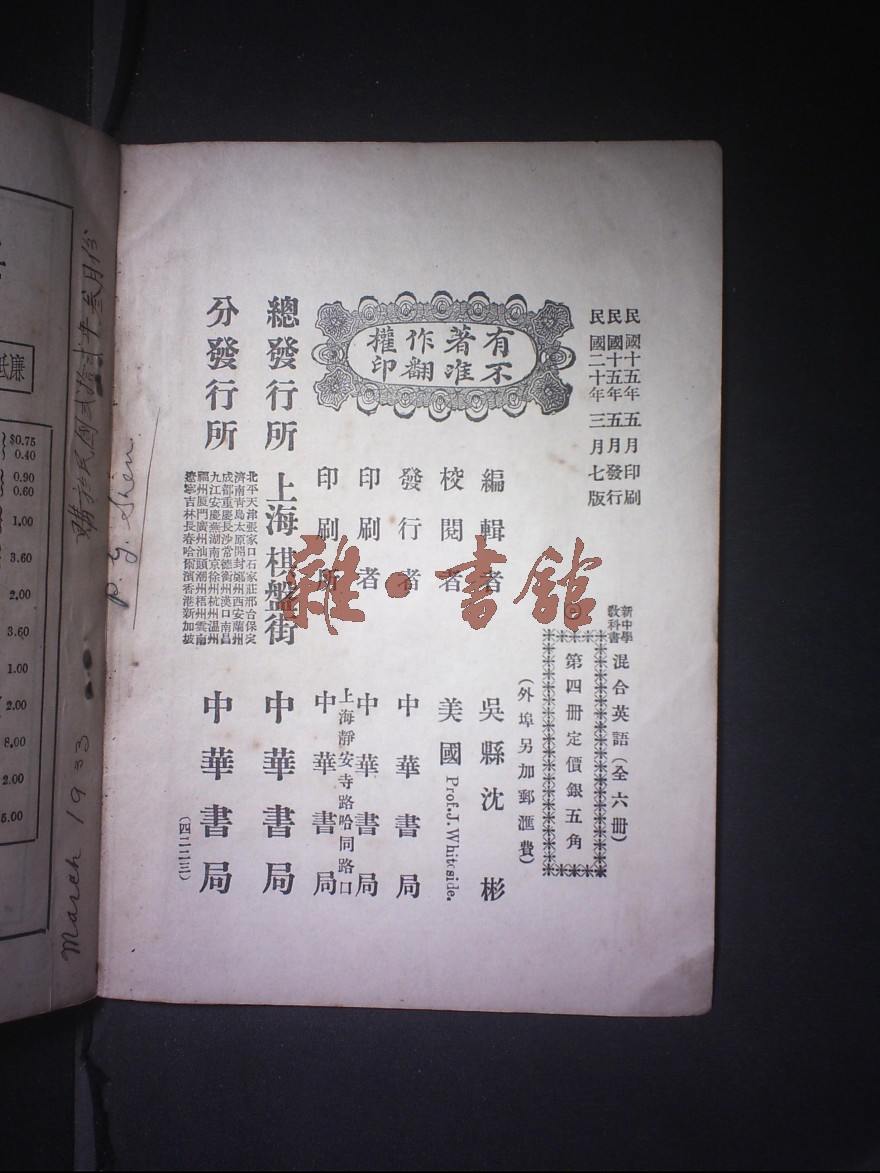 民國十五年五月印刷
民國十五年五月發行
民國二十年三月七版
新中學
教科書
混合英語（全六册）
第四册定價銀五角
（外埠另加郵匯費）
有著作權
不准翻印
編輯者 吳縣沈彬
校閱者 美國 Prof. J. Whiteside.
發行者 中華書局
印刷者 中華書局
上海靜安寺路哈同路口
印刷所 中華書局
總發行所 上海棋盤街 中華書局
分發行所
北平天津張家口石家莊邢台保定
濟南青島太原開封鄭州西安蘭州
成都重慶長沙常德衡州漢口南昌
九江安慶蕪湖南京徐州杭州溫州
福州厦門廣州汕頭潮州梧州雲南
遼寧吉林長春哈爾濱香港新加坡
中華書局
（四二二三）
雜·書館
購於民國貳拾貳年叁月份
P. G. Shen.
March 1933
低廉
$0.75
0.40
0.90
0.60
1.00
3.60
2.00
3.60
1.00
2.00
8.00
2.00
5.00